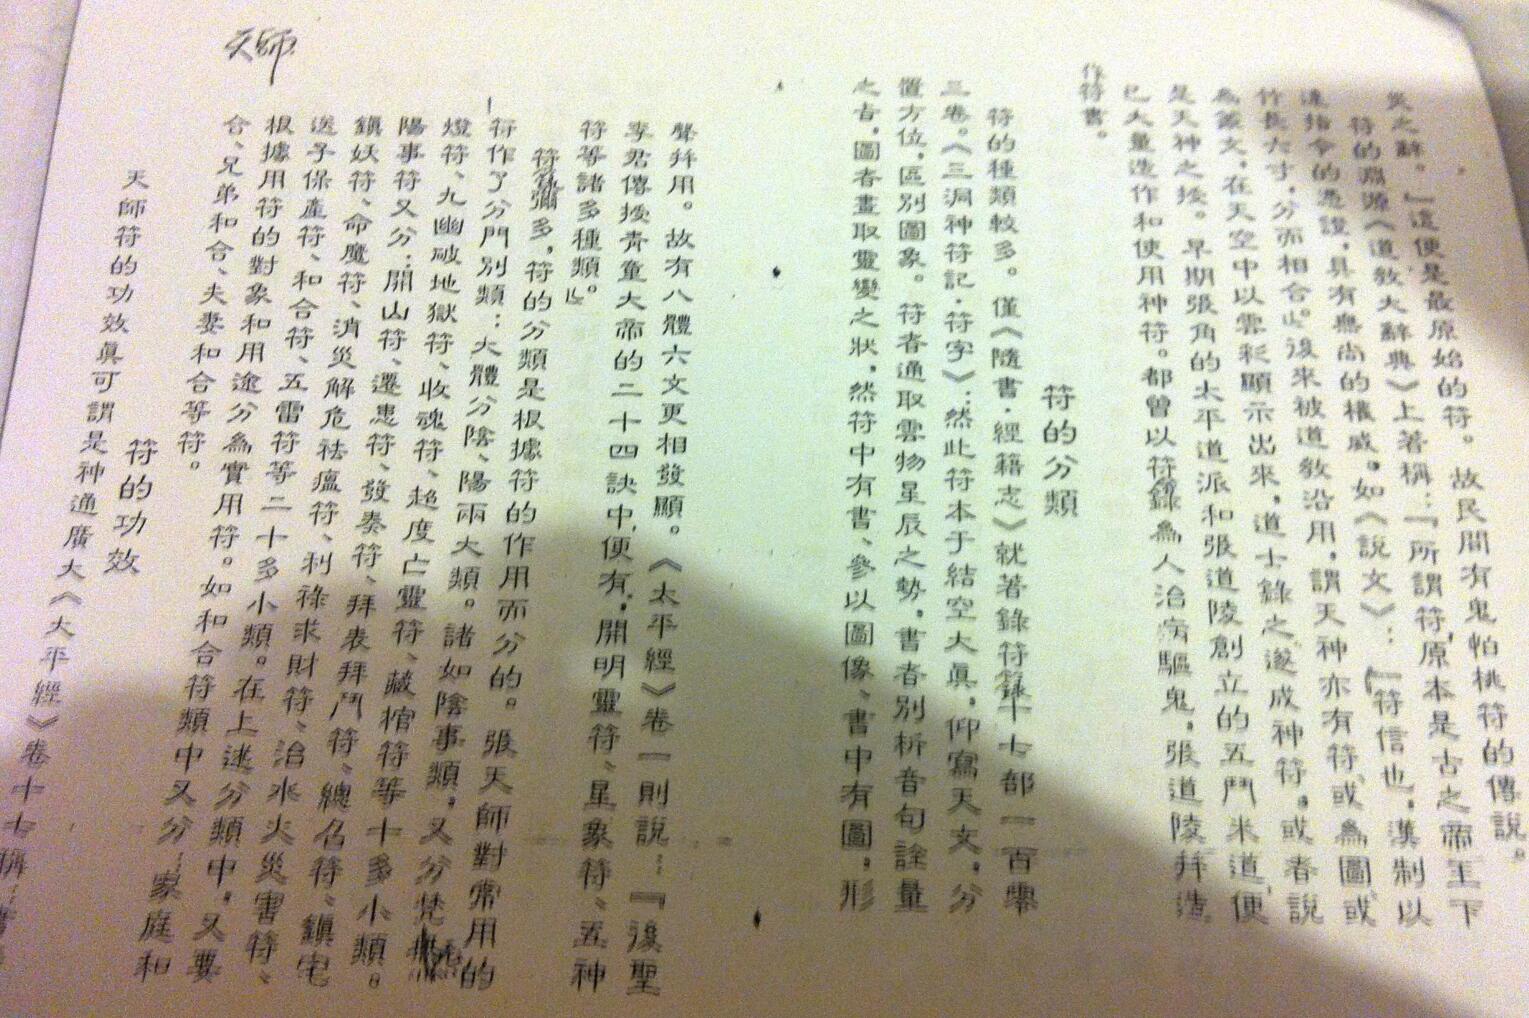 災之辭。』這便是最原始的符。故民間有鬼怕桃符的傳說。
符的淵源《道教大辭典》上著稱：『所謂符，原本是古之帝王下
達指令的憑證，具有無尚的權威。如《說文》：『符信也，漢制以
竹長六寸，分而相合。』後來被道教沿用，謂天神亦有符，或為圖或
為篆文，在天空中以雲彩顯示出來，道士錄之，遂成神符。或者說
是天神之授。早期張角的太平道派和張道陵創立的五鬥米道，便
已大量造作和使用神符。都曾以符籙為人治病驅鬼，張道陵并造
作符書。
符的分類
符的種類較多。僅《隨書·經籍志》就著錄符籙十七部一百零
三卷。《三洞神符記·符字》：然此符本于結空大真，仰寫天文，分
置方位，區別圖象。符者通取雲物星辰之勢，書者別析音句詮量
之旨，圖者畫取靈變之狀，然符中有書、參以圖像、書中有圖，形
聲并用。故有八體六文更相發顯。《太平經》卷一則說：『後聖
李君傳授青童大帝的二十四訣中，便有，開明靈符、星象符、五神
符等諸多種類。』
符籙彌多，符的分類是根據符的作用而分的。張天師對常用的
符作了分門別類：大體分陰、陽兩大類。諸如陰事類，又分梵
燈符、九幽破地獄符、收魂符、超度亡靈符、藏棺符等十多小類。
陽事符又分：開山符、遷患符、發奏符、拜表拜鬥符、總召符、鎮宅
鎮妖符、命魔符、消災解危祛瘟符、利祿求財符、治水火災害符、
送子保產符、和合符、五雷符等二十多小類。在上述分類中，又要
根據用符的對象和用途分為實用符。如和合符類中又分：家庭和
合、兄弟和合、夫妻和合等符。
符的功效
天師符的功效眞可謂是神通廣大《太平經》卷十七稱：
天師